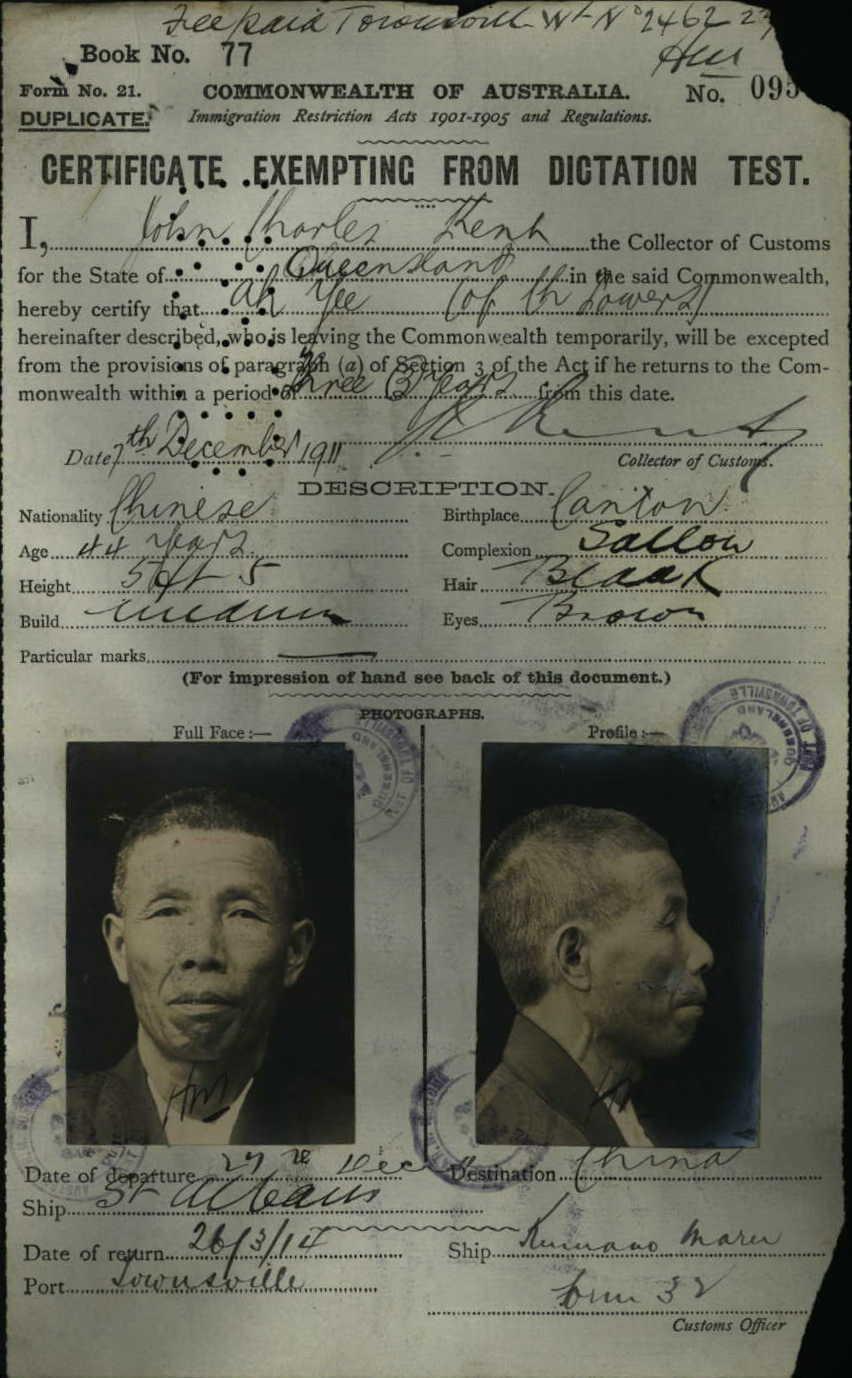 Fee paid Townsville Wt No 2462
Book No. 77
Form No. 21. COMMONWEALTH OF AUSTRALIA. No. 095
DUPLICATE. Immigration Restriction Acts 1901-1905 and Regulations.
CERTIFICATE EXEMPTING FROM DICTATION TEST.
I, John Charles Kent the Collector of Customs
for the State of Queensland in the said Commonwealth,
hereby certify that Ah Yee (of Ch Towers)
hereinafter described, who is leaving the Commonwealth temporarily, will be excepted
from the provisions of paragraph (a) of Section 3 of the Act if he returns to the Com-
monwealth within a period of three (3) years from this date.
Date 7th December 1911 Collector of Customs.
DESCRIPTION.
Nationality Chinese Birthplace Canton
Age 44 years Complexion Sallow
Height 5ft 5 Hair Black
Build medium Eyes Brown
Particular marks —
(For impression of hand see back of this document.)
PHOTOGRAPHS.
Full Face :— Profile :—
HM
Date of departure 27 12 Dec 11 Destination China
Ship St Albans
Date of return 26/3/14 Ship Kumano Maru
Port Townsville
Customs Officer